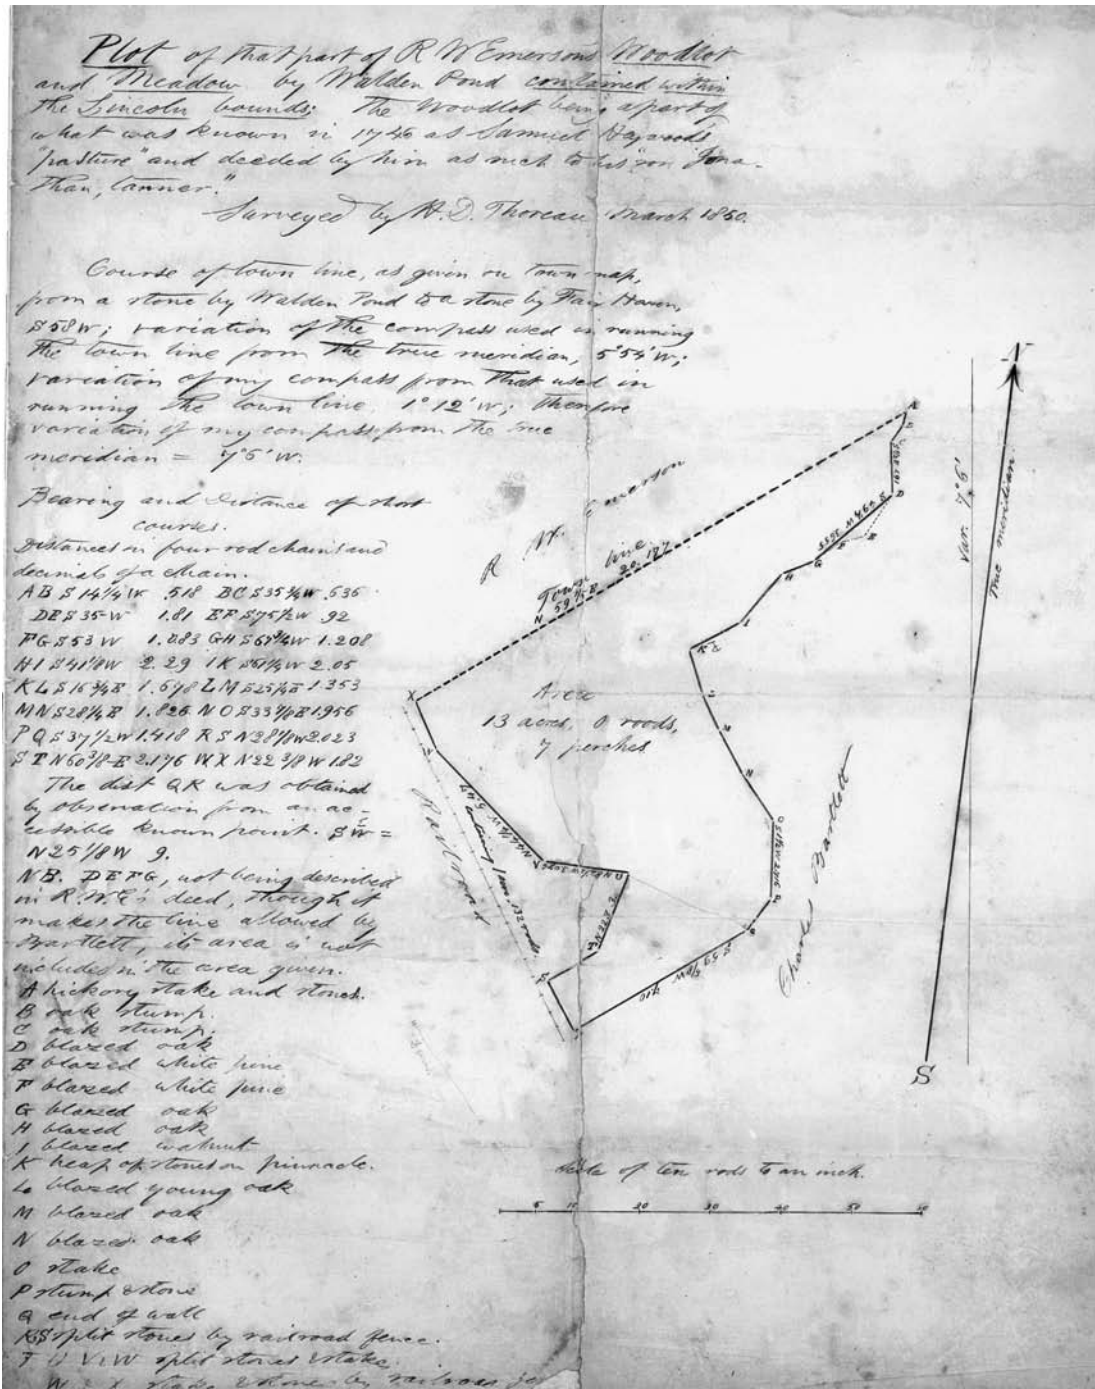 Plot of that part of R W Emersons Woodlot
and Meadow by Walden Pond contained within
the Lincoln bounds; the woodlot being a part of
what was known in 1746 as Samuel Heywoods
"pasture" and deeded by him as such to his "son Jona-
than, tanner."
Surveyed by H. D. Thoreau March 1850.
Course of town line, as given on town-map,
from a stone by Walden Pond to a stone by Fair Haven,
S 58 W; variation of the compass used in running
the town line from the true meridian, 5°54' W;
variation of my compass from that used in
running the town line, 1°12' W; therefore
variation of my compass from the true
meridian = 7°6' W.
Bearing and distance of short
courses.
Distances in four rod chains and
decimals of a chain.
AB S 14 1/4 W .518 BC S 35 1/4 W .636
DE S 35 W 1.81 EF S 75 1/2 W .92
FG S 53 W 1.083 GH S 67 3/4 W 1.208
HI S 41 1/8 W 2.29 IK S 61 1/4 W 2.05
KL S 16 3/4 E 1.698 LM S 25 1/4 E 1.353
MN S 28 1/4 E 1.826 NO S 33 7/8 E 1.956
PQ S 37 1/2 W 1.418 RS N 28 1/8 W 2.023
ST N 60 3/8 E 2.176 WX N 22 3/8 W 1.82
The dist QR was obtained
by observation from an ac-
cessible known point. SW =
N 25 1/8 W 9.
NB. DEFG, not being described
in R.W.E's deed, though it
makes the line allowed by
Bartlett, its area is not
included in the area given.
A hickory stake and stones.
B oak stump.
C oak stump.
D blazed oak
E blazed white pine
F blazed white pine
G blazed oak
H blazed oak
I blazed walnut
K heap of stones on pinnacle.
L blazed young oak
M blazed oak
N blazed oak
O stake
P stump & stone
Q end of wall
R S split stones by railroad fence.
T U V W split stones & stake.
W & X stake & stone by railroad
R. W. Emerson
Town line.
N 59 1/5 E 20.187
Area
13 acres, 0 roods,
7 perches
Railroad
containing 1 acre, 132 rods.
Charles Bartlett
S 59 3/4 W 7.10
Var. 7°6'
True meridian.
N
S
Scale of ten rods to an inch.
5 10 20 30 40 50 60